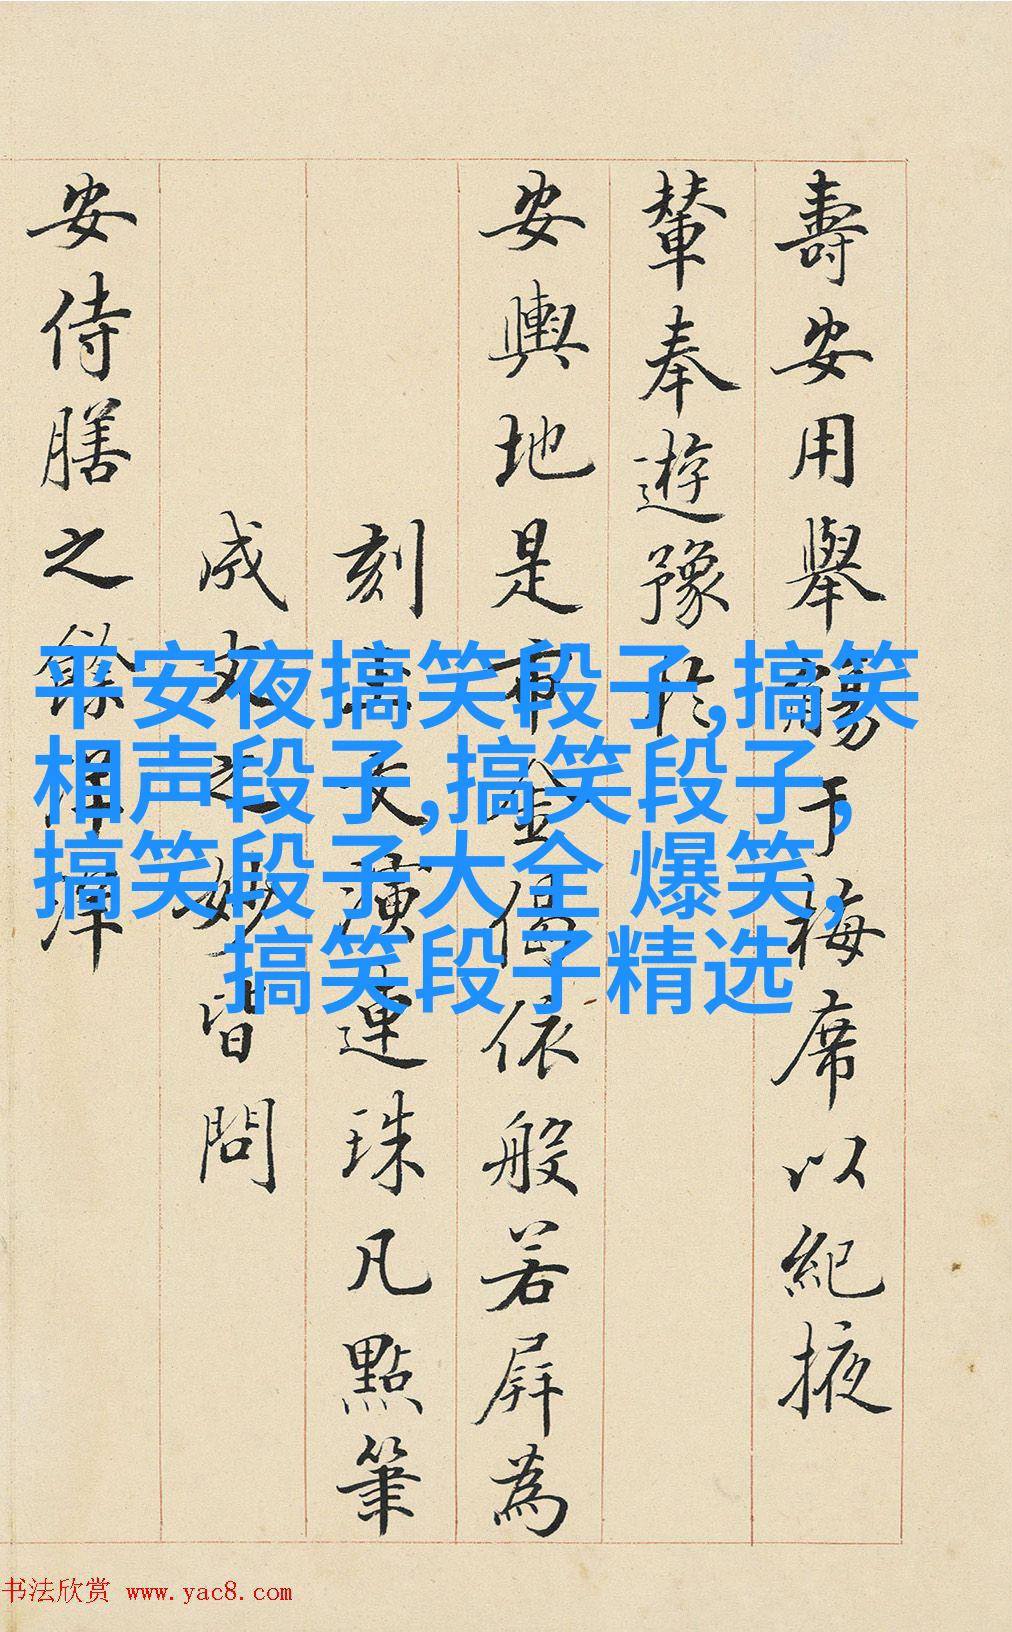 壽安用舉觴于梅席以紀掖
輦奉遊豫於
安輿地是布金偈依般若屏為
刻文演連珠凡點筆
成文之妙皆問
安侍膳之餘
平安夜搞笑段子,搞笑
相声段子,搞笑段子,
搞笑段子大全 爆笑,
搞笑段子精选
书法欣赏 www.yac8.com